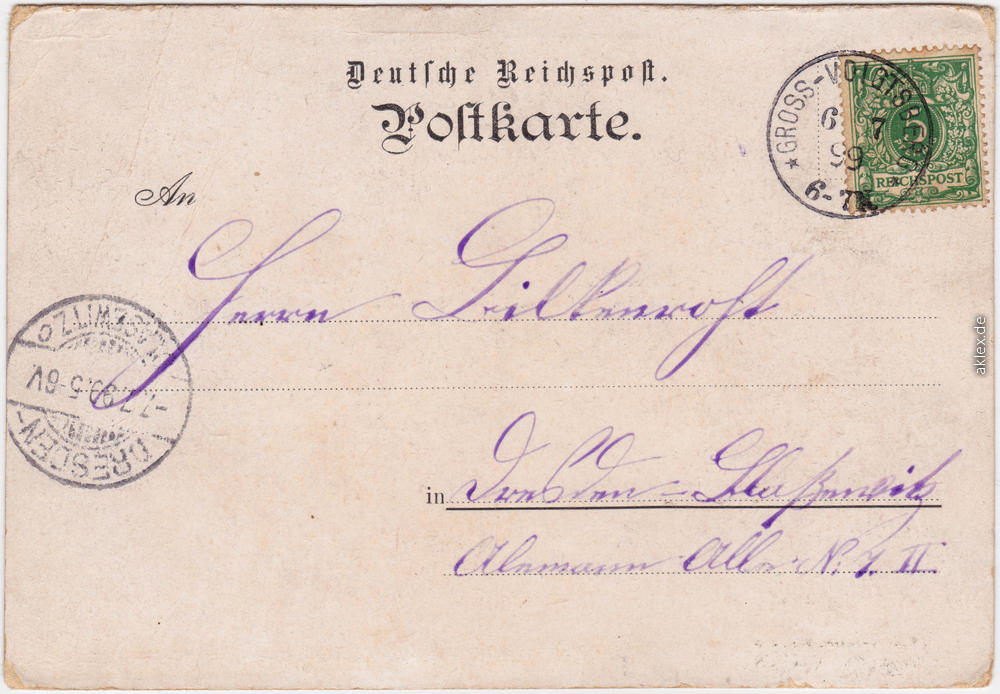 Deutsche Reichspost.
Postkarte.
GROSS-VOIGTSBERG
6 7
99
6-7N.
5
REICHSPOST
An
Herrn Seilkenroht
DRESDEN-BLASEWITZ
-7.7.99.5-6V
in Dresden-Blaßewitz
Alemann Allee N. 7 II.
aklex.de